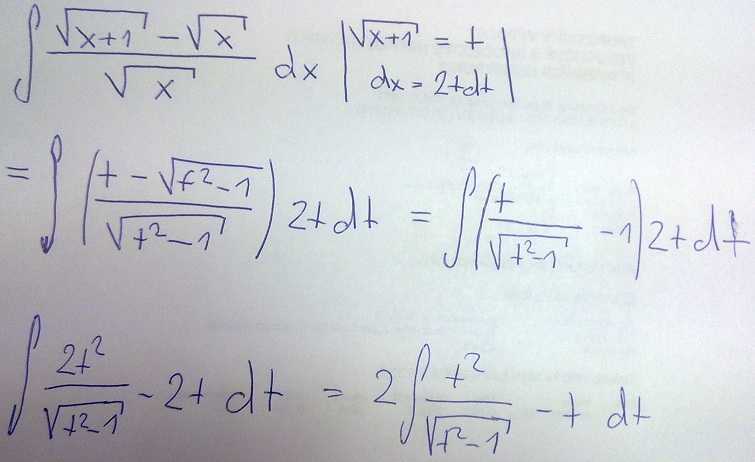 ∫ (√(x+1) − √x)/√x dx | √(x+1) = t
dx = 2t dt |
= ∫ ((t − √(t²−1))/√(t²−1)) 2t dt = ∫ (t/√(t²−1) − 1) 2t dt
∫ 2t²/√(t²−1) − 2t dt = 2 ∫ t²/√(t²−1) − t dt